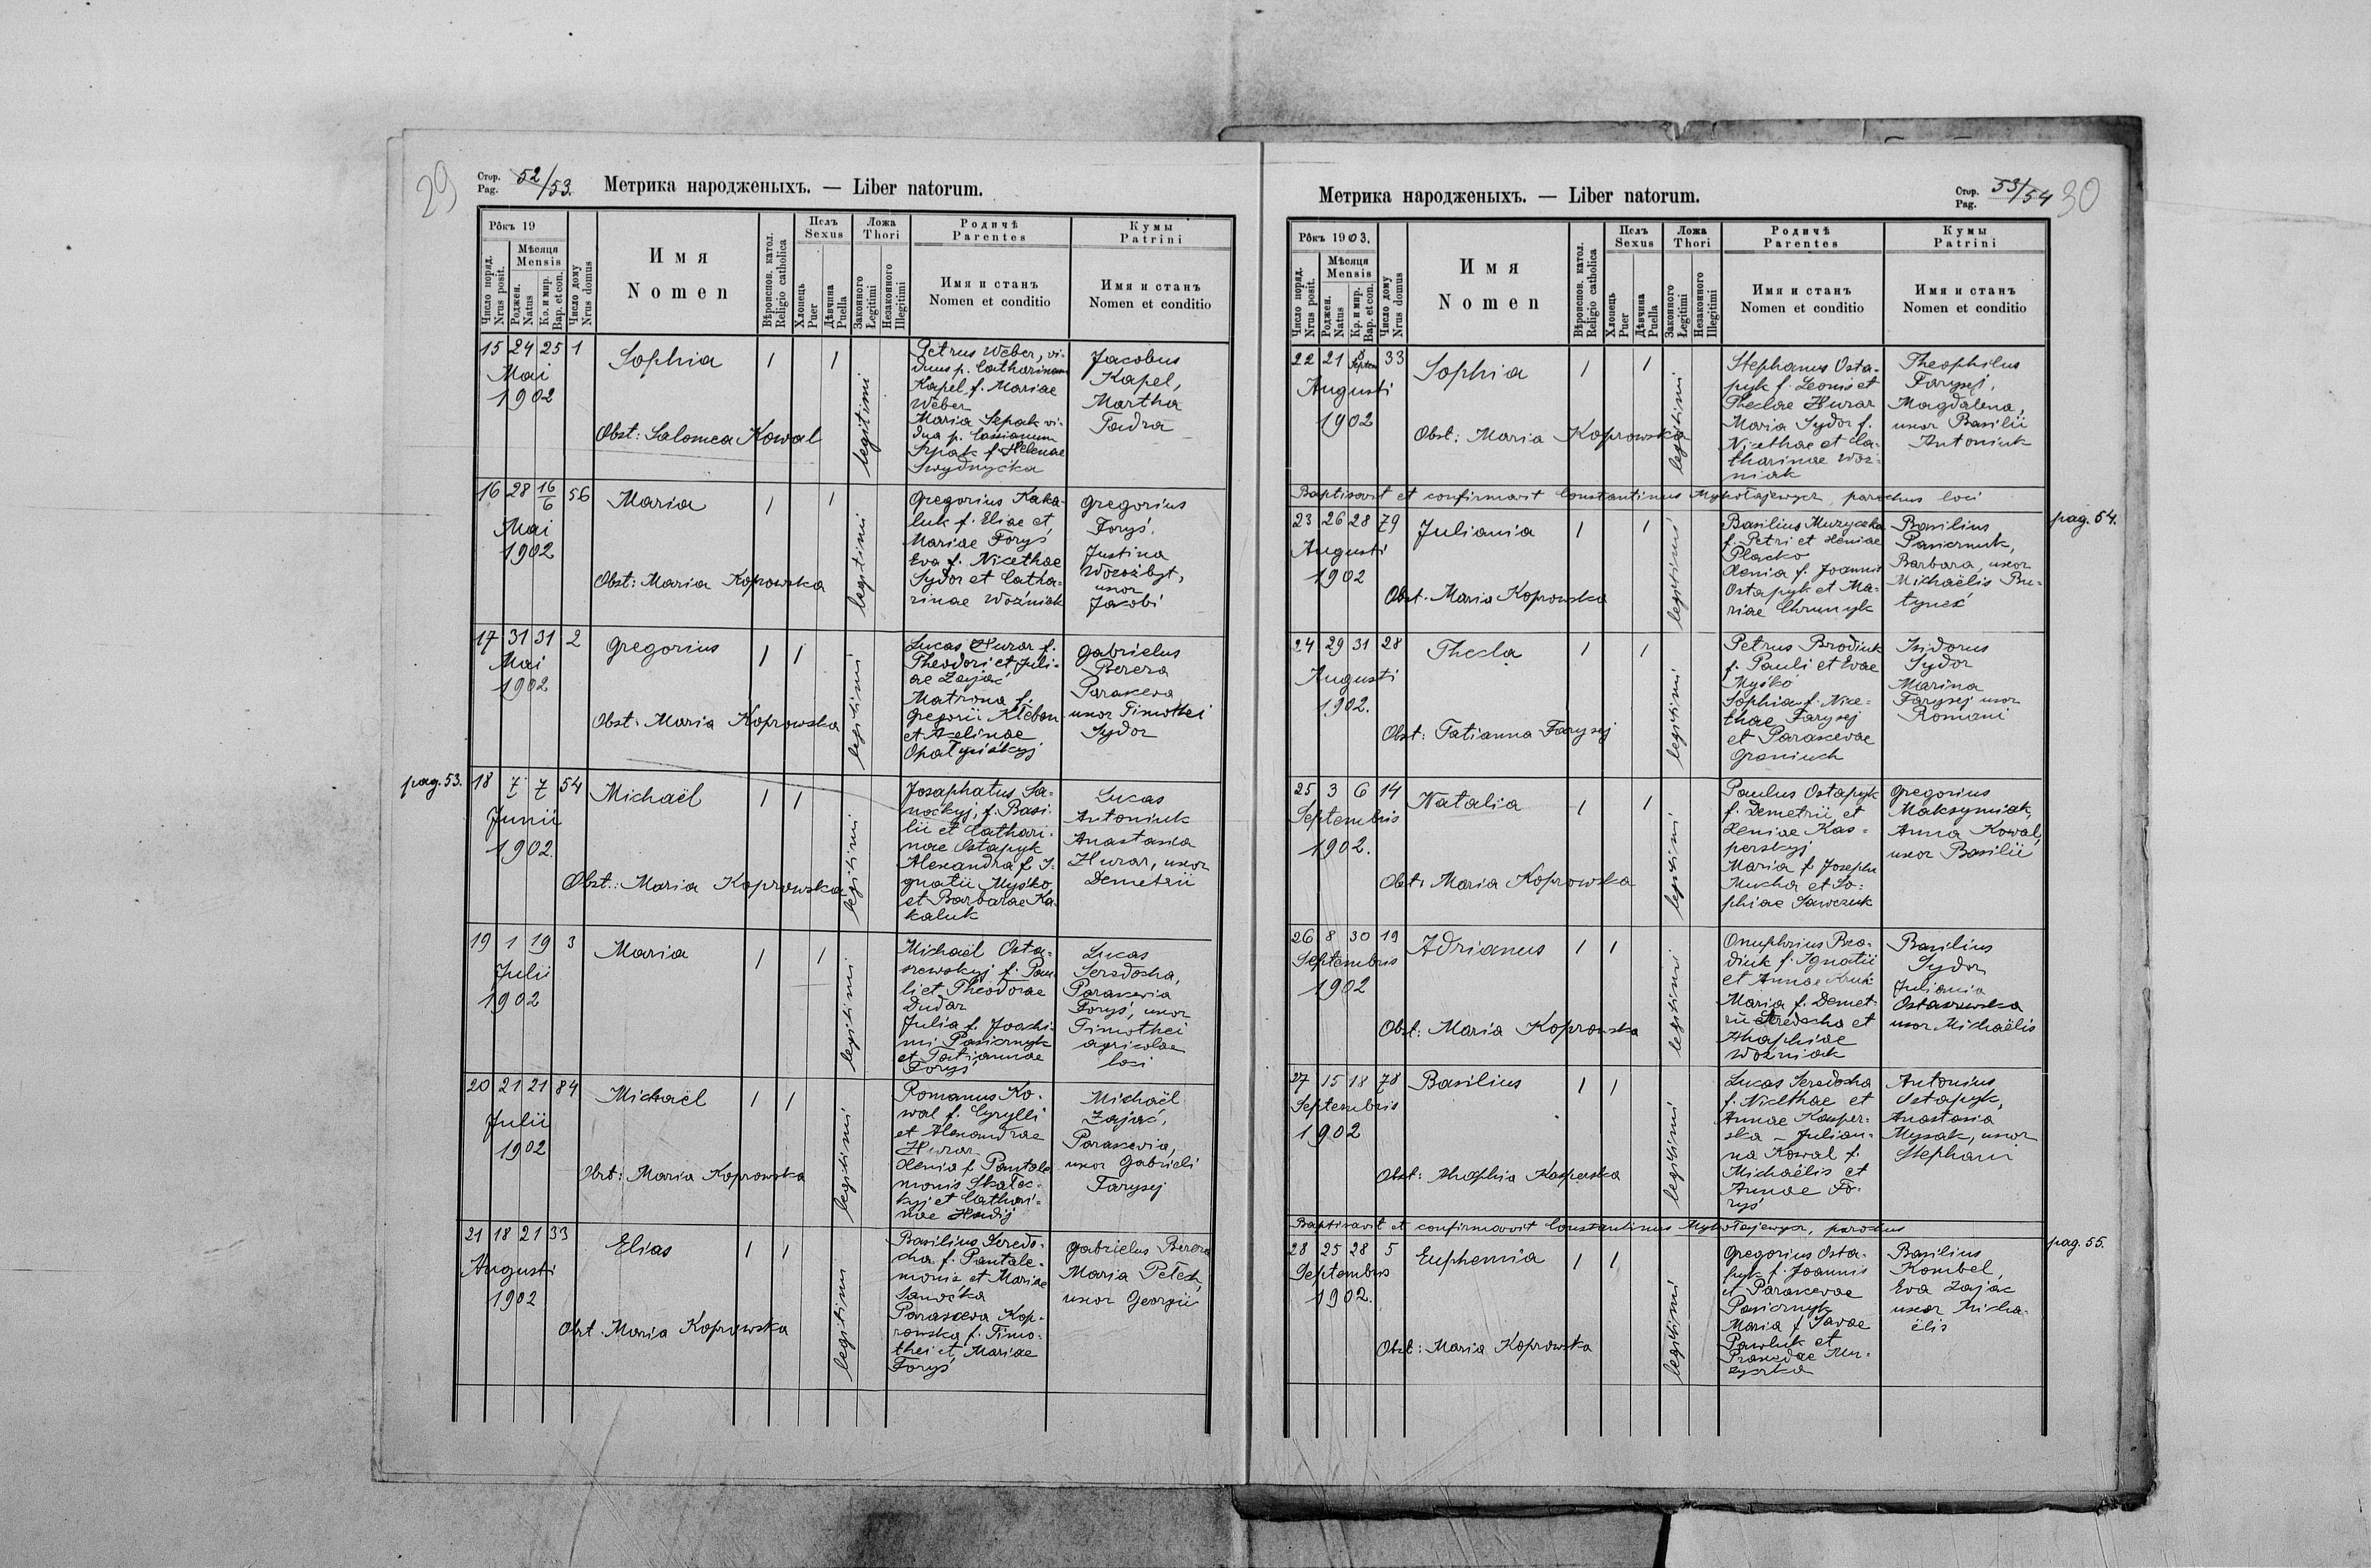 29
Стор. Pag. 52/53.
Метрика народженыхъ. — Liber natorum.
Рôкъ 19
Число поряд. Nrus posit.
Мѣсяця Mensis
Роджен. Natus
Кр. и мир. Bap. et con.
Число дому Nrus domus
Имя
Nomen
Вѣроиспов. катол. Religio catholica
Полъ Sexus
Хлопець Puer
Дѣвчина Puella
Ложа Thori
Законного Legitimi
Незаконного Illegitimi
Родичѣ Parentes
Имя и станъ
Nomen et conditio
Кумы Patrini
Имя и станъ
Nomen et conditio
15 24 25 1
Mai
1902
Sophia
Obst: Salomea Kowal
legitimi
Petrus Weber, vi-
duus p. Catharinam
Kapel, f. Mariae
Weber
Maria Szpak vi-
dua p. Cassianum
Szpak f. Helenae
Swydnyćka
Jacobus
Kapel,
Martha
Fadra
16 28 16/6 56
Mai
1902
Maria
Obst: Maria Koprowska
legitimi
Gregorius Kaka-
luk f. Eliae et
Mariae Foryś
Eva f. Nicethae
Sydor et Catha-
rinae Woźniak
Gregorius
Foryś,
Justina
Worożbyt,
uxor
Jacobi
17 31 31 2
Mai
1902
Gregorius
Obst: Maria Koprowska
legitimi
Lucas Hurar f.
Theodori et Juli-
ae Zając
Matrona f.
Gregorii Kłeban
et Azelinae
Gabrielus
Berera
Parasceva
uxor Timothei
Sydor
pag. 53.
18 7 7 54
Junii
1902.
Michaël
Obst.: Maria Koprowska
legitimi
Josaphatus Sa-
noćkyj, f. Basi-
lii et Cathari-
nae Ostapyk
Alexandra f. I-
gnatii Myśko
et Barbarae Ka-
kaluk
Lucas
Antoniuk
Anastasia
Hurar, uxor
Demetrii
19 1 19 3
Julii
1902
Maria
legitimi
Michaël Osta-
szewskyj f. Pau-
li et Theodorae
Dudar
Julia f. Joachi-
mi Pasicznyk
et Tatiannae
Foryś
Lucas
Seredocha,
Parascevia
Foryś, uxor
Timothei
agricolae
loci
20 21 21 84
Julii
1902
Michaël
Obst: Maria Koprowska
legitimi
Romanus Ko-
wal f. Cyrylli
et Alexandrae
Hurar
Xenia f. Pantale-
monis Skałec-
kyj et Cathari-
nae Hudij
Michaël
Zając,
Parascevia,
uxor Gabrieli
Farysej
21 18 21 33
Augusti
1902
Elias
Obst. Maria Koprowska
legitimi
Basilius Seredo-
cha f. Pantale-
monis et Mariae
Sanoćka
Parasceva Kop-
rowska f. Timo-
thei et Mariae
Foryś
Gabrielus Berera
Maria Petech,
uxor Georgii
Метрика народженыхъ. — Liber natorum.
Стор. Pag. 53/54
30
Рôкъ 1903.
Число поряд. Nrus posit.
Мѣсяця Mensis
Роджен. Natus
Кр. и мир. Bap. et con.
Число дому Nrus domus
Имя
Nomen
Вѣроиспов. катол. Religio catholica
Полъ Sexus
Хлопець Puer
Дѣвчина Puella
Ложа Thori
Законного Legitimi
Незаконного Illegitimi
Родичѣ Parentes
Имя и станъ
Nomen et conditio
Кумы Patrini
Имя и станъ
Nomen et conditio
22 21 Septem 33
Augusti
1902
Sophia
Obst: Maria Koprowska
legitimi
Stephanus Osta-
pyk f. Leonis et
Theclae Hurar
Maria Sydor f.
Nicethae et Ca-
tharinae Woź-
niak
Theophilus
Farysej,
Magdalena,
uxor Basilii
Antoniuk
Baptisavit et confirmavit Constantinus Mykołajewycz, parochus loci
pag. 54.
23 26 28 79
Augusti
1902
Juliania
Obst. Maria Koprowska
legitimi
Basilius Muzyczka
f. Petri et Xeniae
Placko
Xenia f. Joannis
Ostapyk et Ma-
riae Chrunyk
Basilius
Pasicznuk,
Barbara, uxor
Michaëlis Bu-
tyneć
24 29 31 28
Augusti
1902.
Thecla
Obst: Tatianna Farysej
legitimi
Petrus Brodiuk
f. Pauli et Evae
Myśko
Sophia f. Nice-
thae Farysej
et Parascevae
Isidorus
Sydor
Marina
Farysej uxor
Romani
25 3 6 14
Septembris
1902.
Natalia
Obst: Maria Koprowska
legitimi
Paulus Ostapyk
f. Demetrii et
Xeniae Kas-
perskyj
Maria f. Josephi
Mucha et So-
phiae Sawczuk
Gregorius
Maksymiak,
Anna Kowal,
uxor Basilii
26 8 30 19
Septembris
1902
Adrianus
Obst: Maria Koprowska
legitimi
Onuphrius Bro-
diuk f. Ignatii
et Annae Kruk
Maria f. Demet-
rii Seredocha et
Ahaphiae
Woźniak
Basilius
Sydor
Juliania
Ostaszewska
uxor Michaëlis
27 15 18 78
Septembris
1902
Basilius
Obst: Ahaphia Kasperska
legitimi
Lucas Seredocha
f. Nicethae et
Annae Kasper-
ska – Julian-
na Kowal f.
Michaëlis et
Annae Fo-
ryś
Antonius
Ostapyk,
Anastasia
Mysak, uxor
Stephani
Baptisavit et confirmavit Constantinus Mykołajewycz, parochus
pag. 55.
28 25 28 5
Septembris
1902.
Euphemia
Obst: Maria Koprowska
legitimi
Gregorius Osta-
pyk f. Joannis
et Parascevae
Pasicznyk
Maria f. Savae
Pawluk et
Praxedae Mu-
zyczka
Basilius
Kombel,
Eva Zając
uxor Micha-
ëlis